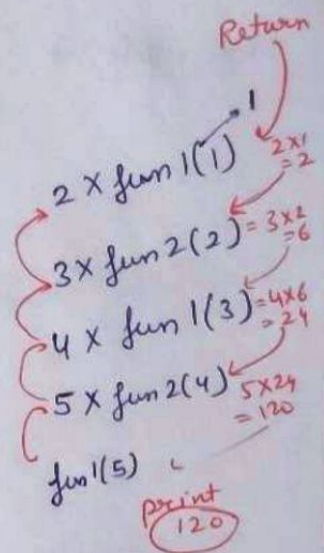 Return
1
2 x fun 1(1) 2x1
= 2
3 x fun 2(2) = 3x2
= 6
4 x fun 1(3) = 4x6
= 24
5 x fun 2(4) 5x24
= 120
fun1(5)
print
120